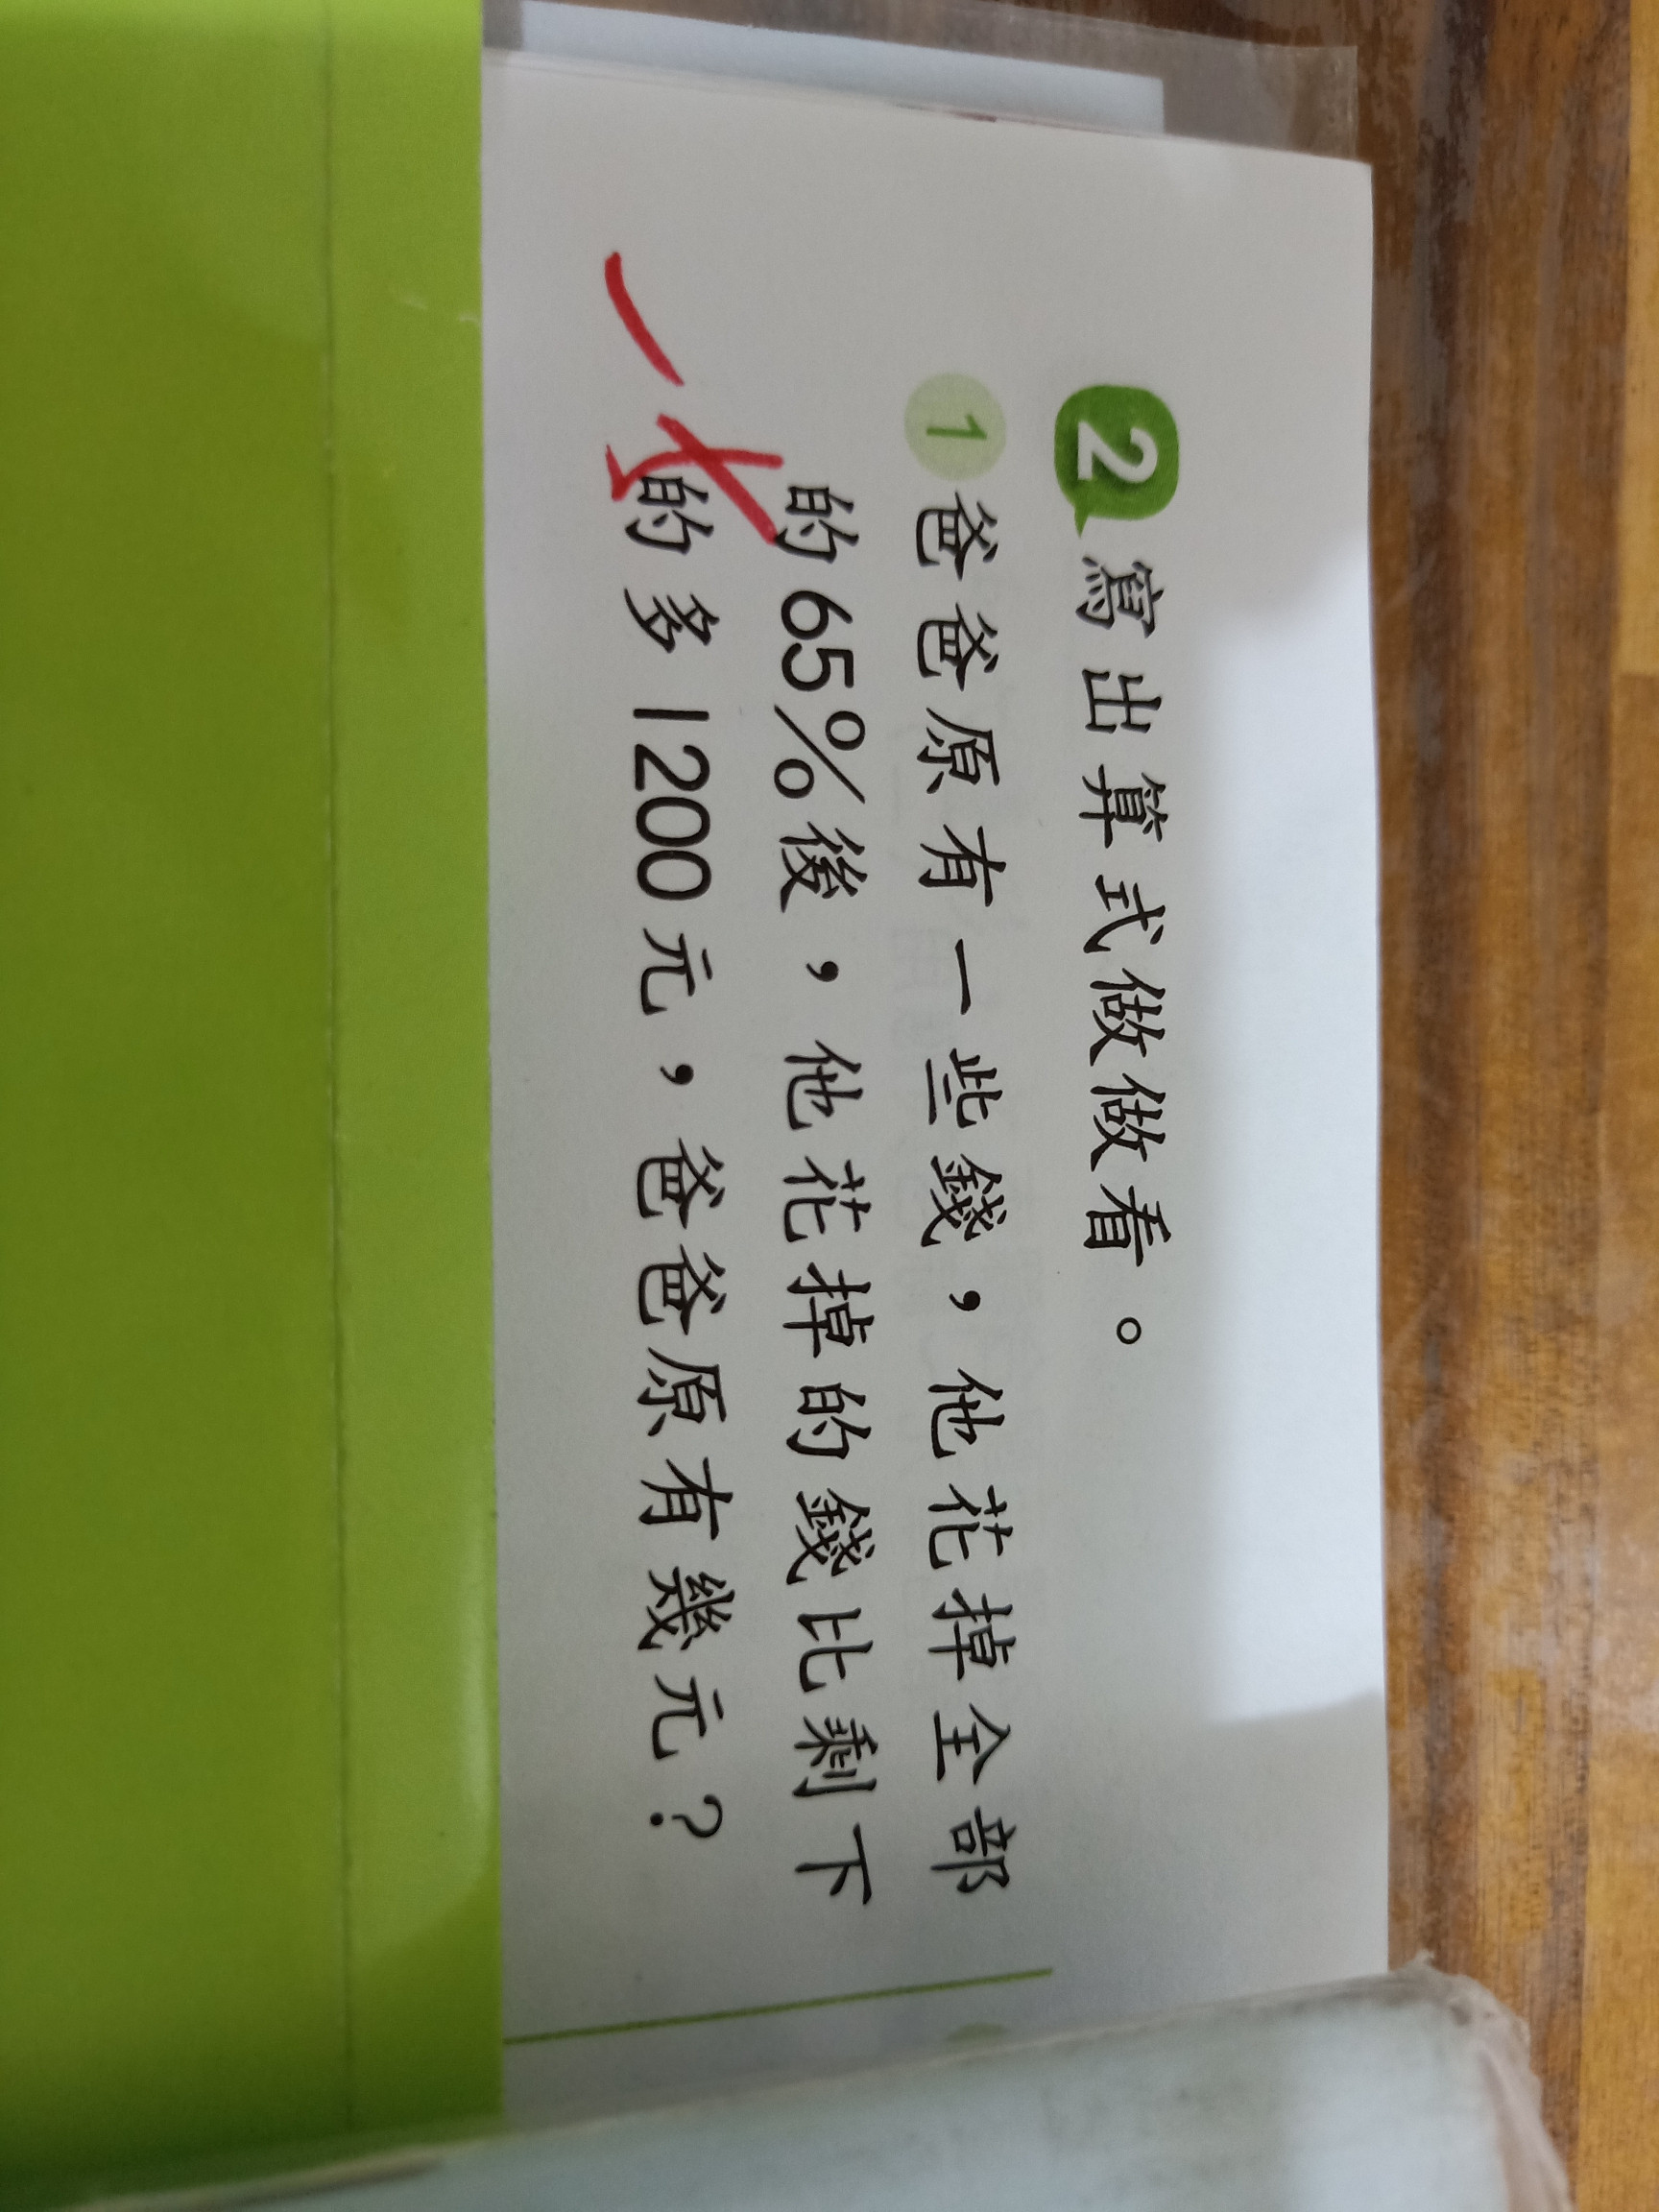 2 寫出算式做做看。
1 爸爸原有一些錢，他花掉全部
的65%後，他花掉的錢比剩下
的多1200元，爸爸原有幾元？